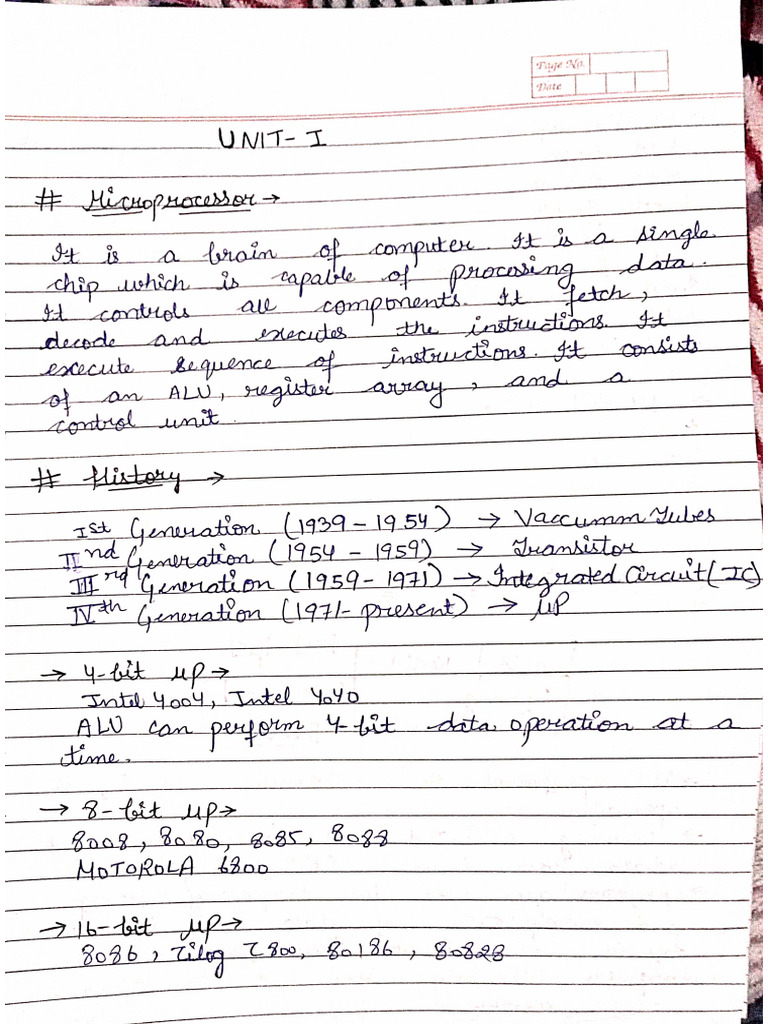 Page No.
Date
UNIT-I
# Microprocessor →
It is a brain of computer. It is a single
chip which is capable of processing data.
It controls all components. It fetch,
decode and executes the instructions. It
execute sequence of instructions. It consists
of an ALU, register array, and a
control unit.
# History →
Ist Generation (1939-1954) → Vaccumm Tubes
IInd Generation (1954-1959) → Transistor
IIIrd Generation (1959-1971) → Integrated Circuit (IC)
IVth Generation (1971-present) → μP
→ 4-bit μP →
Intel 4004, Intel 4040
ALU can perform 4-bit data operation at a
time.
→ 8-bit μP →
8008, 8080, 8085, 8088
MOTOROLA 6800
→ 16-bit μP →
8086, Zilog Z800, 80186, 80828